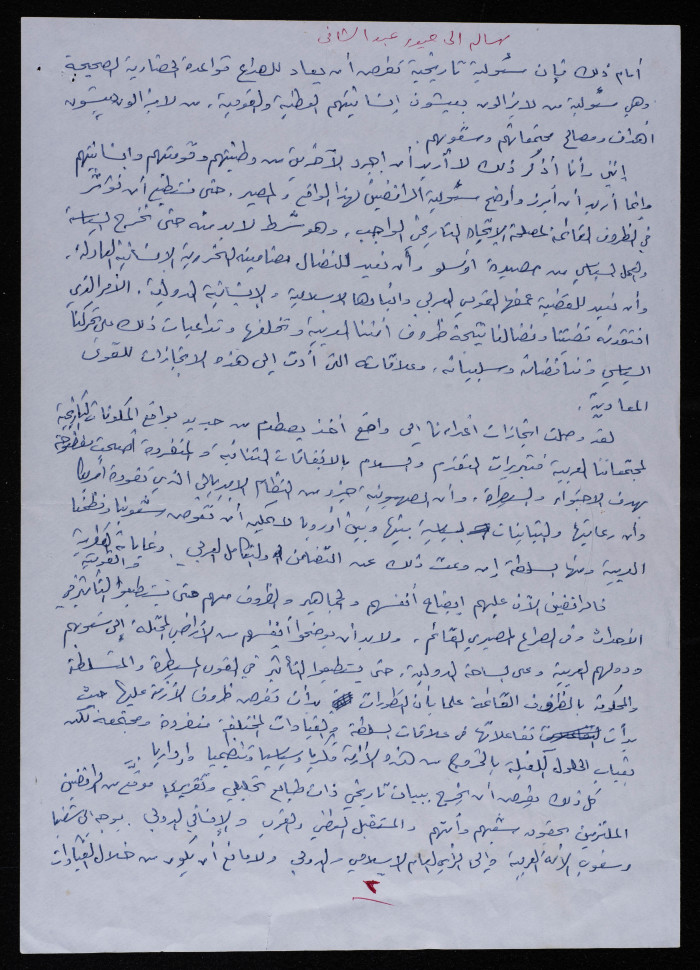 رسالة الى حيدر عبد الشافي
أمام ذلك فإن مسئولية تاريخية تفرض أن يعاد للصراع قواعده الحضارية الصحيحة
وهي مسئولية من لا يزالون يعيشون إنسانيتهم الوطنية والقومية، من لا يزالون يعيشون
أهداف ومصالح مجتمعاتهم وشعوبهم.
إنني وأنا أذكر ذلك لا أريد أن أجرد الآخرين من وطنيتهم وقوميتهم وانسانيتهم
وإنما أريد أن أبرز وأوضح مسئولية الرافضين لهذا الواقع والمصير. حتى نستطيع أن نؤثر
في الظروف القائمة لمصلحة الإتجاه التاريخي الواجب، وهو شرط لا بد منه حتى نخرج السياسة
والعمل السياسي من مصيدة أوسلو وأن نعيد للنضال مضامينه التحررية الإنسانية العادلة،
وأن نعيد للقضية عمقها القومي العربي وأبعادها الاسلامية والإنسانية الدولية. الأمر الذي
افتقدته قضيتنا ونضالنا نتيجة ظروف أمتنا العربية وتخلفها وتداعيات ذلك على تحركنا
السياسي وتناقضاته وسلبياته، وعلاقاته التي أدت إلى هذه الانجازات للقوى
المعادية.
لقد وصلت انجازات أعداءنا إلى واقع أخذ يصطدم من جديد بواقع المكونات التاريخية
لمجتمعاتنا العربية فتبريرات التقدم والسلام بالاتفاقات الثنائية والمنفردة أصبحت مفضوحة
بهدف الاحتواء والسيطرة، وأن الصهيونية جزء من النظام الامبريالي الذي تقوده أمريكا
وأن رعايتها والتباينات السياسية بينها وبين أوروبا لا يمكن أن تعوض شعوبنا وأنظمتنا
العربية ومنها السلطة إن وعت ذلك عن التضامن والتكامل العربي. وغاياته القطرية
والقومية
فالرافضين الآن عليهم ايضاح أنفسهم والجماهير والظروف منهم حتى يستطيعوا التأثير في
الأحداث وفي الصراع المصيري القائم، ولا بد أن يوضحوا أنفسهم من الأراضي المحتلة إلى شعوبهم
ودولهم العربية وعلى الساحة الدولية، حتى يستطيعوا التأثير في القوى المسيطرة والمتسلطة
والمحكومة بالظروف القائمة علما بأن التطورات بدأت تفرض ظروف الأزمة عليها حيث
بدأت تفاعلاتها في علاقات السلطة والقيادات المختلفة منفردة ومجتمعة لكن
بغياب الحلول الكفيلة بالخروج من هذه الأزمة فكريا وسياسيا وتنظيميا واداريا.
كل ذلك يفرض أن نخرج ببيان تاريخي ذات طابع تحليلي وتقريري موقع من الرافضين
الملتزمين بحقوق شعبهم وأمتهم والمستقبل الوطني والعربي والإنساني الدولي. يوجه إلى شعبنا
وشعوب الأمة العربية وإلى الرأي العام الإسلامي والدولي ولا مانع أن يكون من خلال القيادات
٢